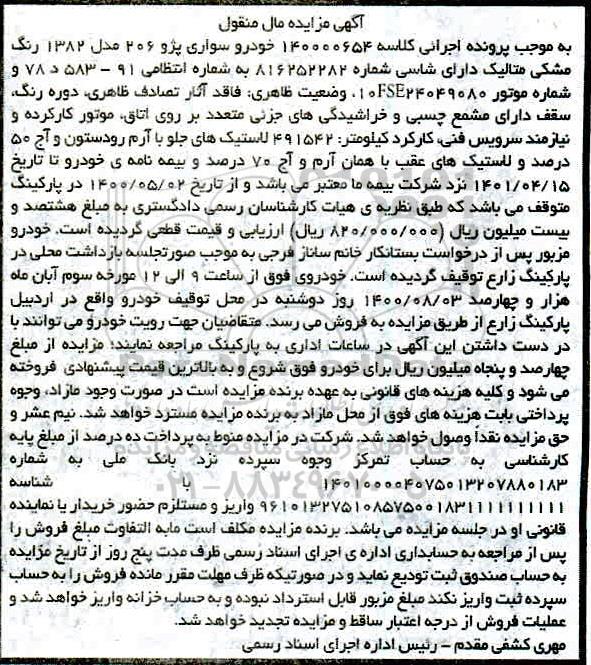 آگهی مزایده مال منقول
به موجب پرونده اجرائی کلاسه ۱۴۰۰۰۰۶۵۴ خودرو سواری پژو ۲۰۶ مدل ۱۳۸۲ رنگ
مشکی متالیک دارای شاسی شماره ۸۱۶۲۵۲۲۸۲ به شماره انتظامی ۹۱ – ۵۸۳ د ۷۸ و
شماره موتور ۱۰FSE۲۴۰۴۹۰۸۰، وضعیت ظاهری: فاقد آثار تصادف ظاهری، دوره رنگ،
سقف دارای مشمع چسبی و خراشیدگی های جزئی متعدد بر روی اتاق، موتور کارکرده و
نیازمند سرویس فنی، کارکرد کیلومتر: ۴۹۱۵۴۲ لاستیک های جلو با آرم رودستون و آج ۵۰
درصد و لاستیک های عقب با همان آرم و آج ۷۰ درصد و بیمه نامه ی خودرو تا تاریخ
۱۴۰۱/۰۴/۱۵ نزد شرکت بیمه ما معتبر می باشد و از تاریخ ۱۴۰۰/۰۵/۰۲ در پارکینگ
متوقف می باشد که طبق نظریه ی هیات کارشناسان رسمی دادگستری به مبلغ هشتصد و
بیست میلیون ریال (۸۲۰/۰۰۰/۰۰۰ ریال) ارزیابی و قیمت قطعی گردیده است. خودرو
مزبور پس از درخواست بستانکار خانم ساناز فرجی به موجب صورتجلسه بازداشت محلی در
پارکینگ زارع توقیف گردیده است. خودروی فوق از ساعت ۹ الی ۱۲ مورخه سوم آبان ماه
هزار و چهارصد ۱۴۰۰/۰۸/۰۳ روز دوشنبه در محل توقیف خودرو واقع در اردبیل
پارکینگ زارع از طریق مزایده به فروش می رسد. متقاضیان جهت رویت خودرو می توانند با
در دست داشتن این آگهی در ساعات اداری به پارکینگ مراجعه نمایند؛ مزایده از مبلغ
چهارصد و پنجاه میلیون ریال برای خودرو فوق شروع و به بالاترین قیمت پیشنهادی فروخته
می شود و کلیه هزینه های قانونی به عهده برنده مزایده است در صورت وجود مازاد، وجوه
پرداختی بابت هزینه های فوق از محل مازاد به برنده مزایده مسترد خواهد شد. نیم عشر و
حق مزایده نقداً وصول خواهد شد. شرکت در مزایده منوط به پرداخت ده درصد از مبلغ پایه
کارشناسی به حساب تمرکز وجوه سپرده نزد بانک ملی به شماره
۱۴۰۱۰۰۰۰۴۰۷۵۰۱۳۲۰۷۸۸۰۱۸۳ با شناسه
۹۶۱۰۱۳۲۷۵۱۰۸۵۷۵۰۰۱۸۳۱۱۱۱۱۱۱۱۱۱ واریز و مستلزم حضور خریدار یا نماینده
قانونی او در جلسه مزایده می باشد. برنده مزایده مکلف است مابه التفاوت مبلغ فروش را
پس از مراجعه به حسابداری اداره ی اجرای اسناد رسمی ظرف مدت پنج روز از تاریخ مزایده
به حساب صندوق ثبت تودیع نماید و در صورتیکه ظرف مهلت مقرر مانده فروش را به حساب
سپرده ثبت واریز نکند مبلغ مزبور قابل استرداد نبوده و به حساب خزانه واریز خواهد شد و
عملیات فروش از درجه اعتبار ساقط و مزایده تجدید خواهد شد.
مهری کشفی مقدم – رئیس اداره اجرای اسناد رسمی